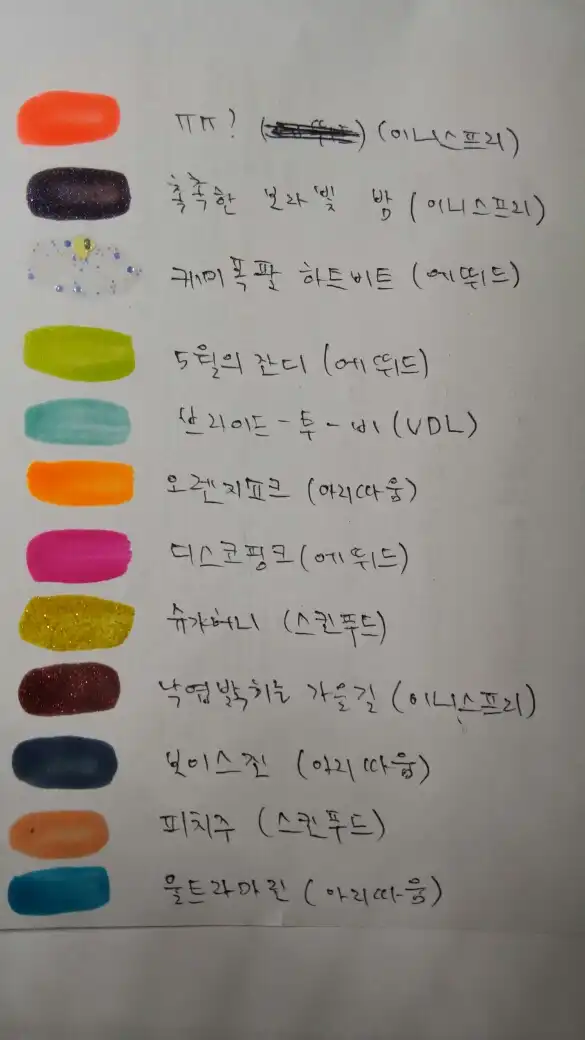 ㅠㅠ? (이니스프리)
촉촉한 보라빛 밤 (이니스프리)
케미폭팔 하트비트 (에뛰드)
5월의 잔디 (에뛰드)
브라이드-투-비 (VDL)
오렌지쇼크 (아리따움)
디스코핑크 (에뛰드)
슈가허니 (스킨푸드)
낙엽밟히는 가을길 (이니스프리)
보이스진 (아리따움)
피치주 (스킨푸드)
울트라마린 (아리따움)